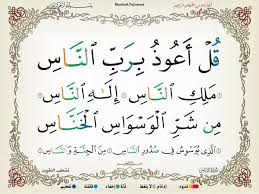 Mushaf Tajweed
قُلْ أَعُوذُ بِرَبِّ ٱلنَّاسِ
مَلِكِ ٱلنَّاسِ إِلَٰهِ ٱلنَّاسِ
مِن شَرِّ ٱلْوَسْوَاسِ ٱلْخَنَّاسِ
ٱلَّذِى يُوَسْوِسُ فِى صُدُورِ ٱلنَّاسِ مِنَ ٱلْجِنَّةِ وَٱلنَّاسِ
مصحف التجويد